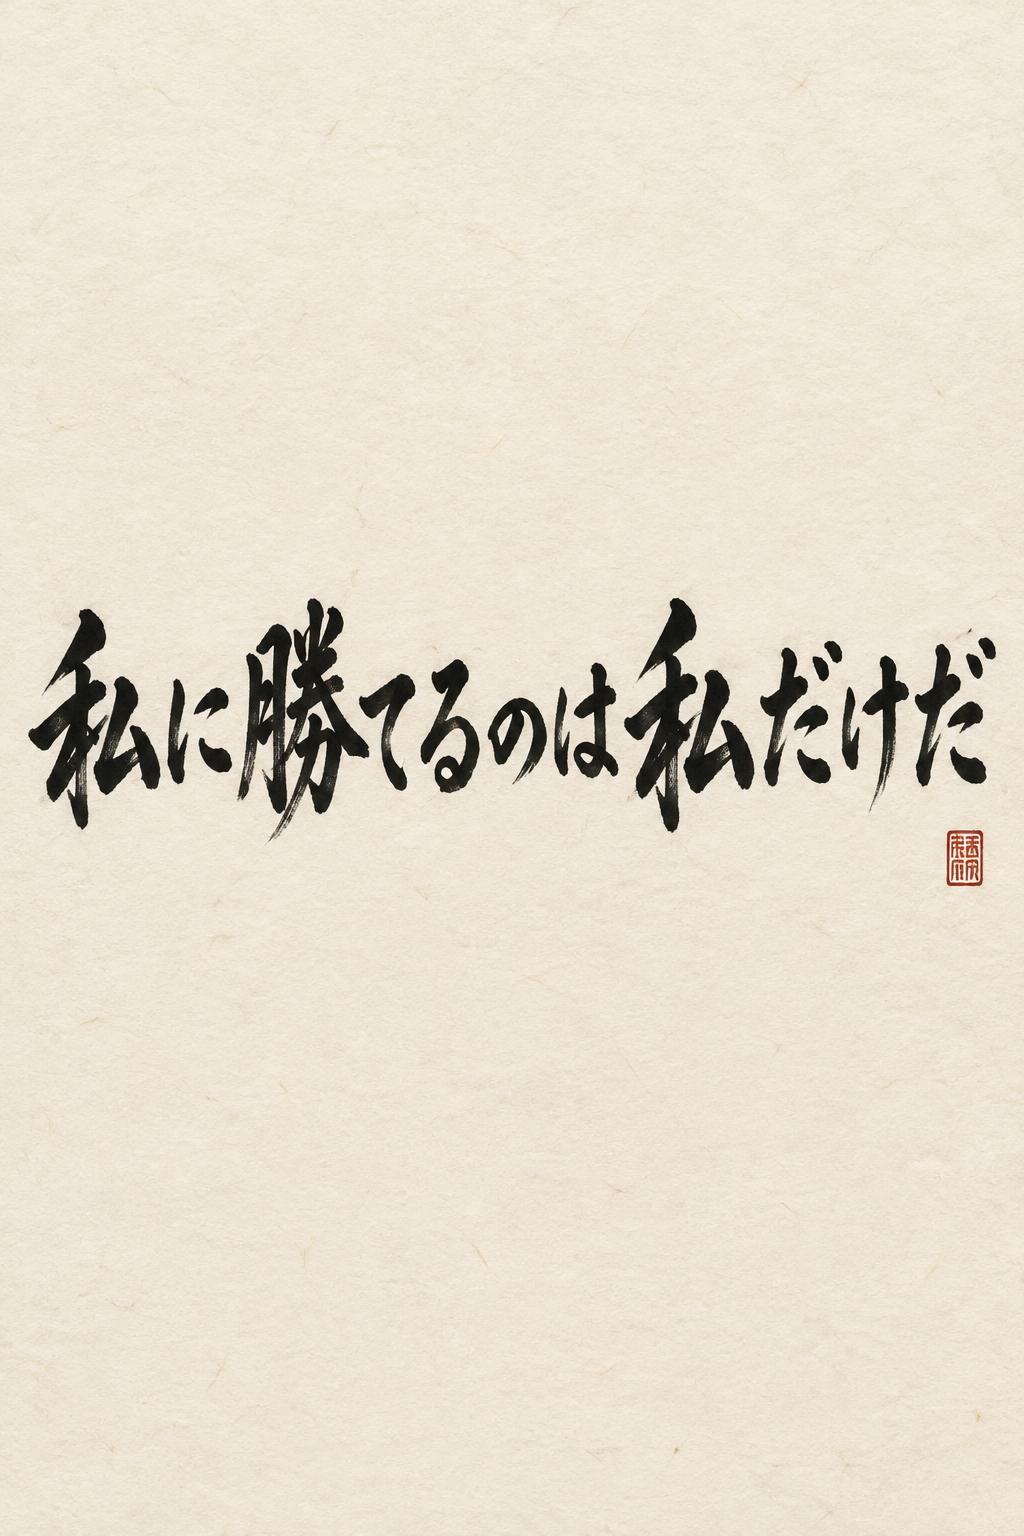 私に勝てるのは私だけだ